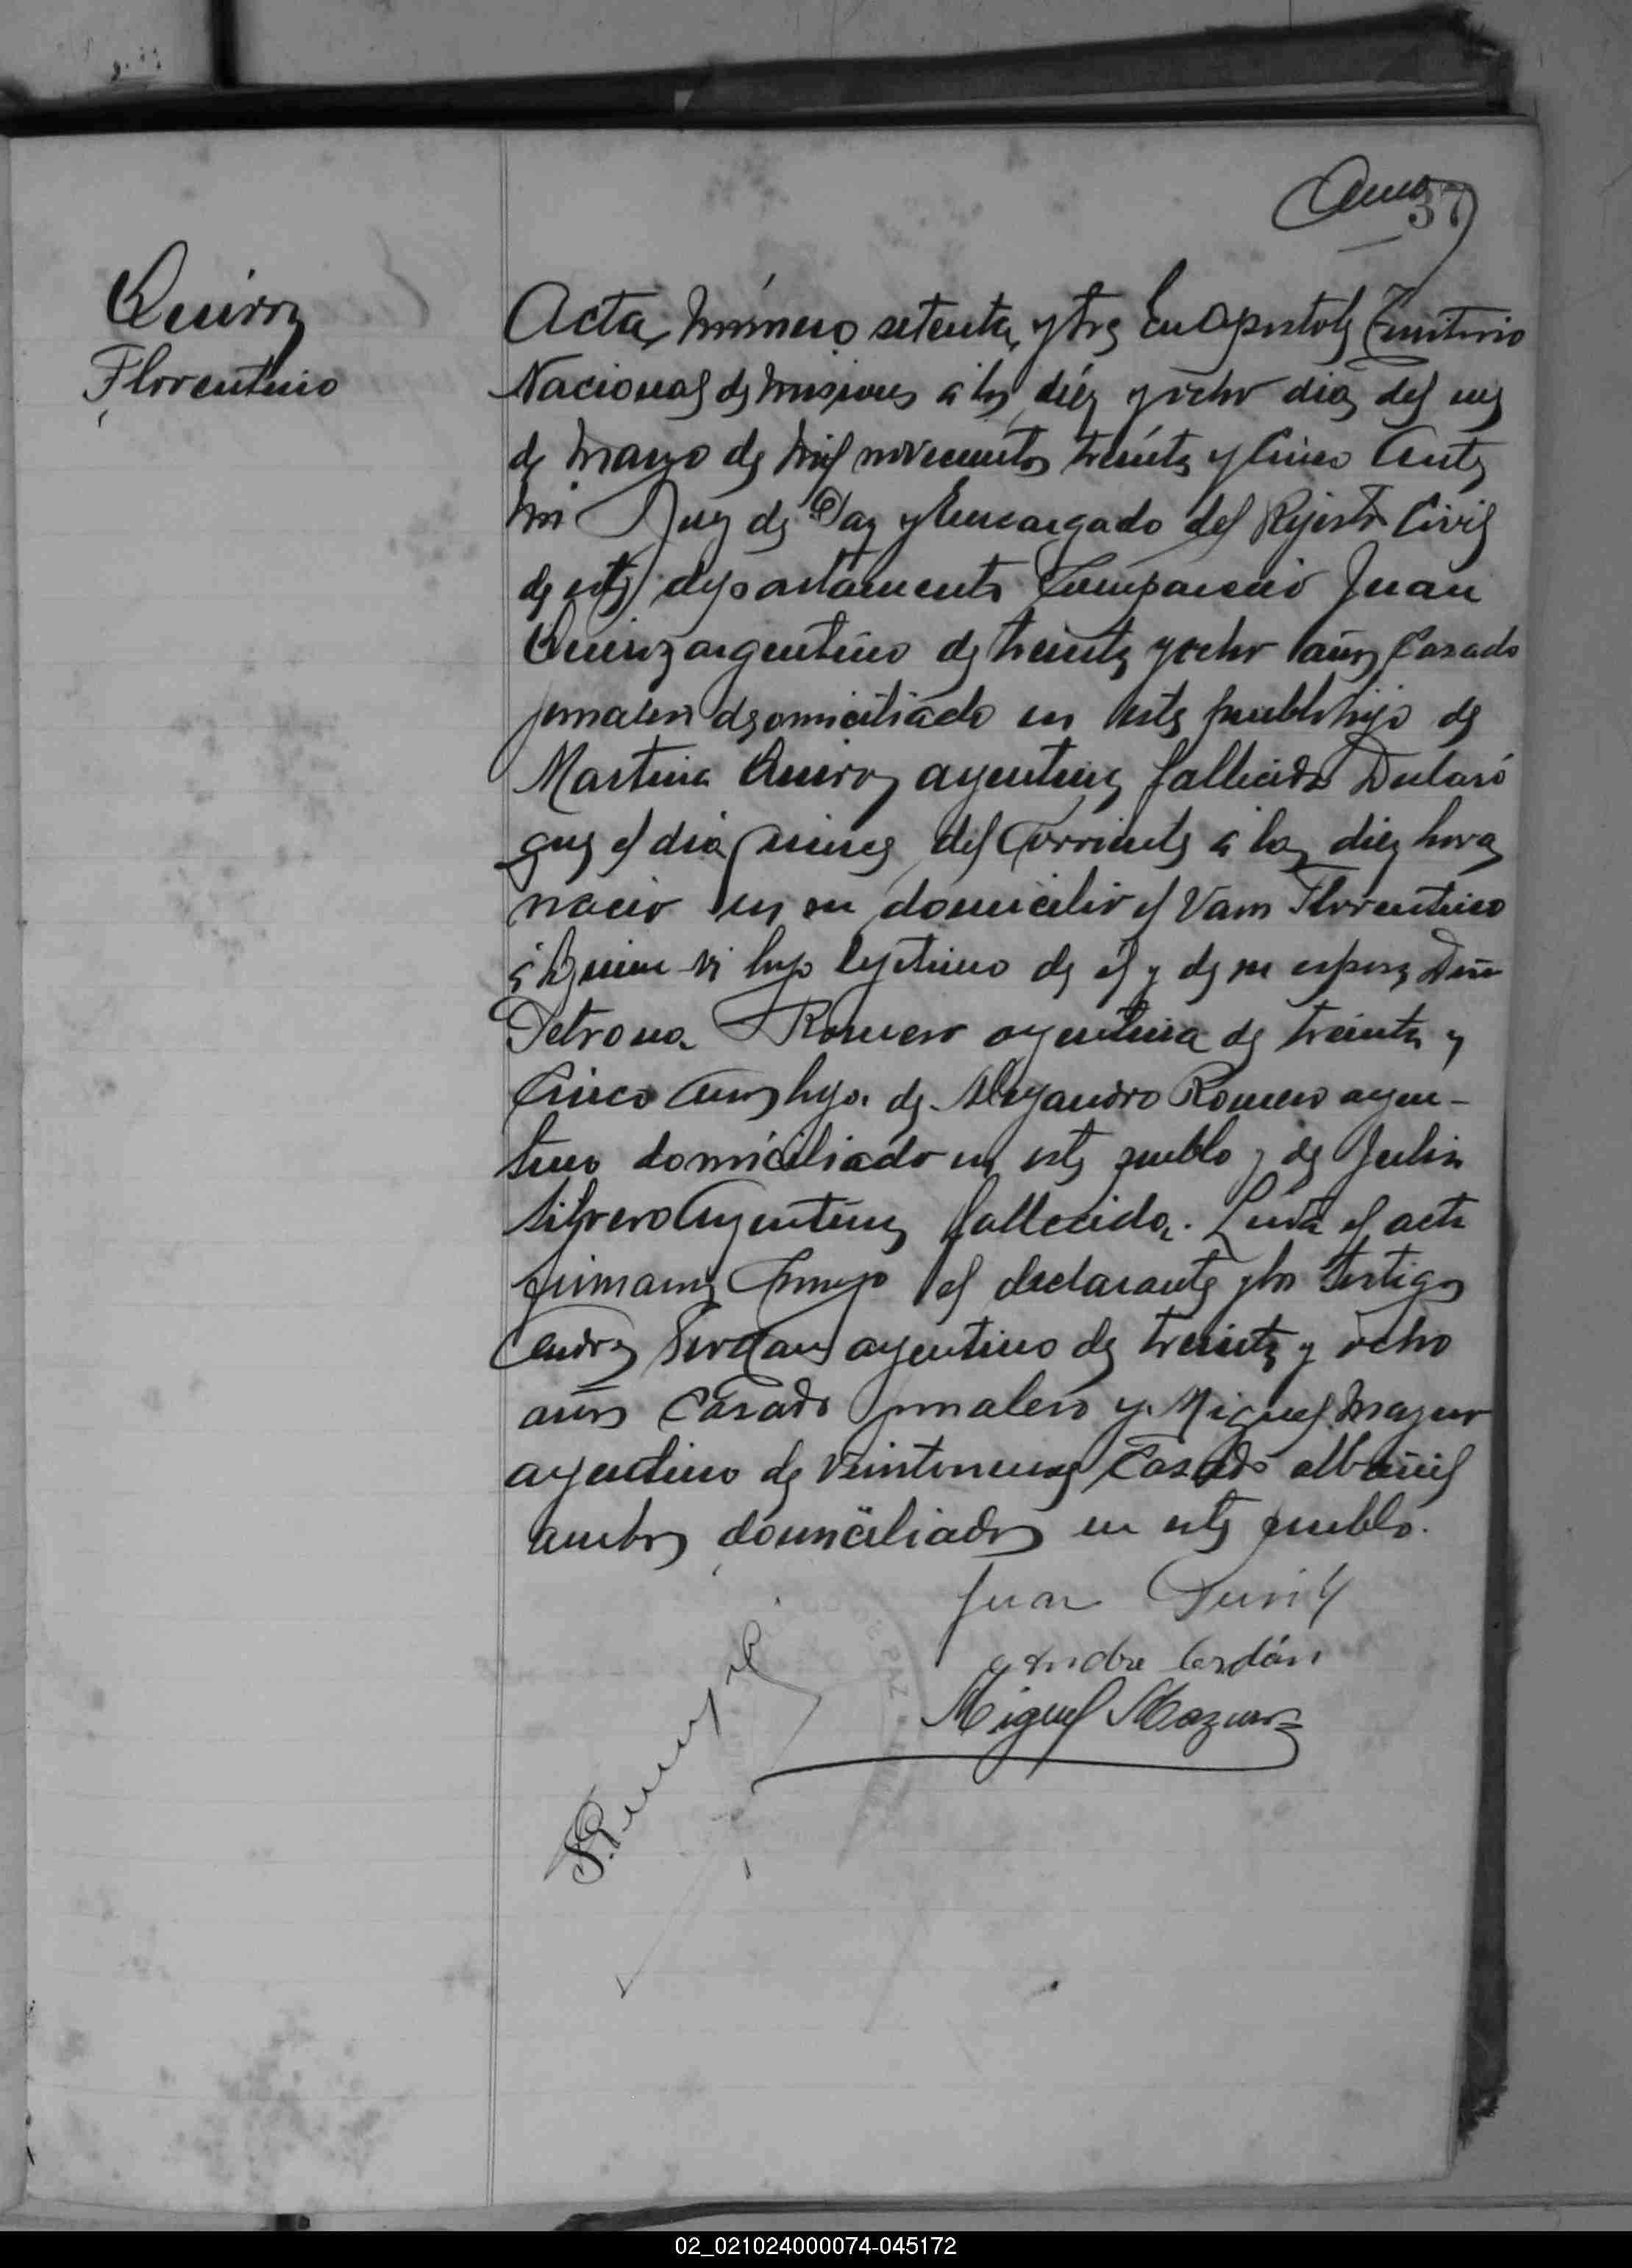 37
Quiroz
Florentino
Acta número setenta y tres En Apostoles Territorio
Nacional de Misiones á los diéz y ocho dias del mes
de Marzo de Mil novecientos treinta y Cinco Ante
mi Juez de Paz y Encargado del Rejistro Civil
de este departamento Comparecio Juan
Quiroz argentino de treinta y ocho años Casado
jornalero domiciliado en este pueblo hijo de
Martina Quiroz argentina fallecida Declaró
que el dia del Corriente á las diez horas
nacio en su domicilio el Varon Florentino
á quien vi hijo lejitimo de él y de su esposa Doña
Petrona Romero argentina de treinta y
Cinco años hija de Alejandro Romero argen-
tino domiciliado en este pueblo y de Julia
Silvero Argentina fallecida. Leida el acta
firmaron Conmigo el declarante y los testigos
Andres argentino de treinta y ocho
años Casado jornalero y Miguel Mazur
argentino de veintinueve Casado albañil
ambos domiciliados en este pueblo.
Juan
Andre Cerdán
Miguel Mazur
02_021024000074-045172